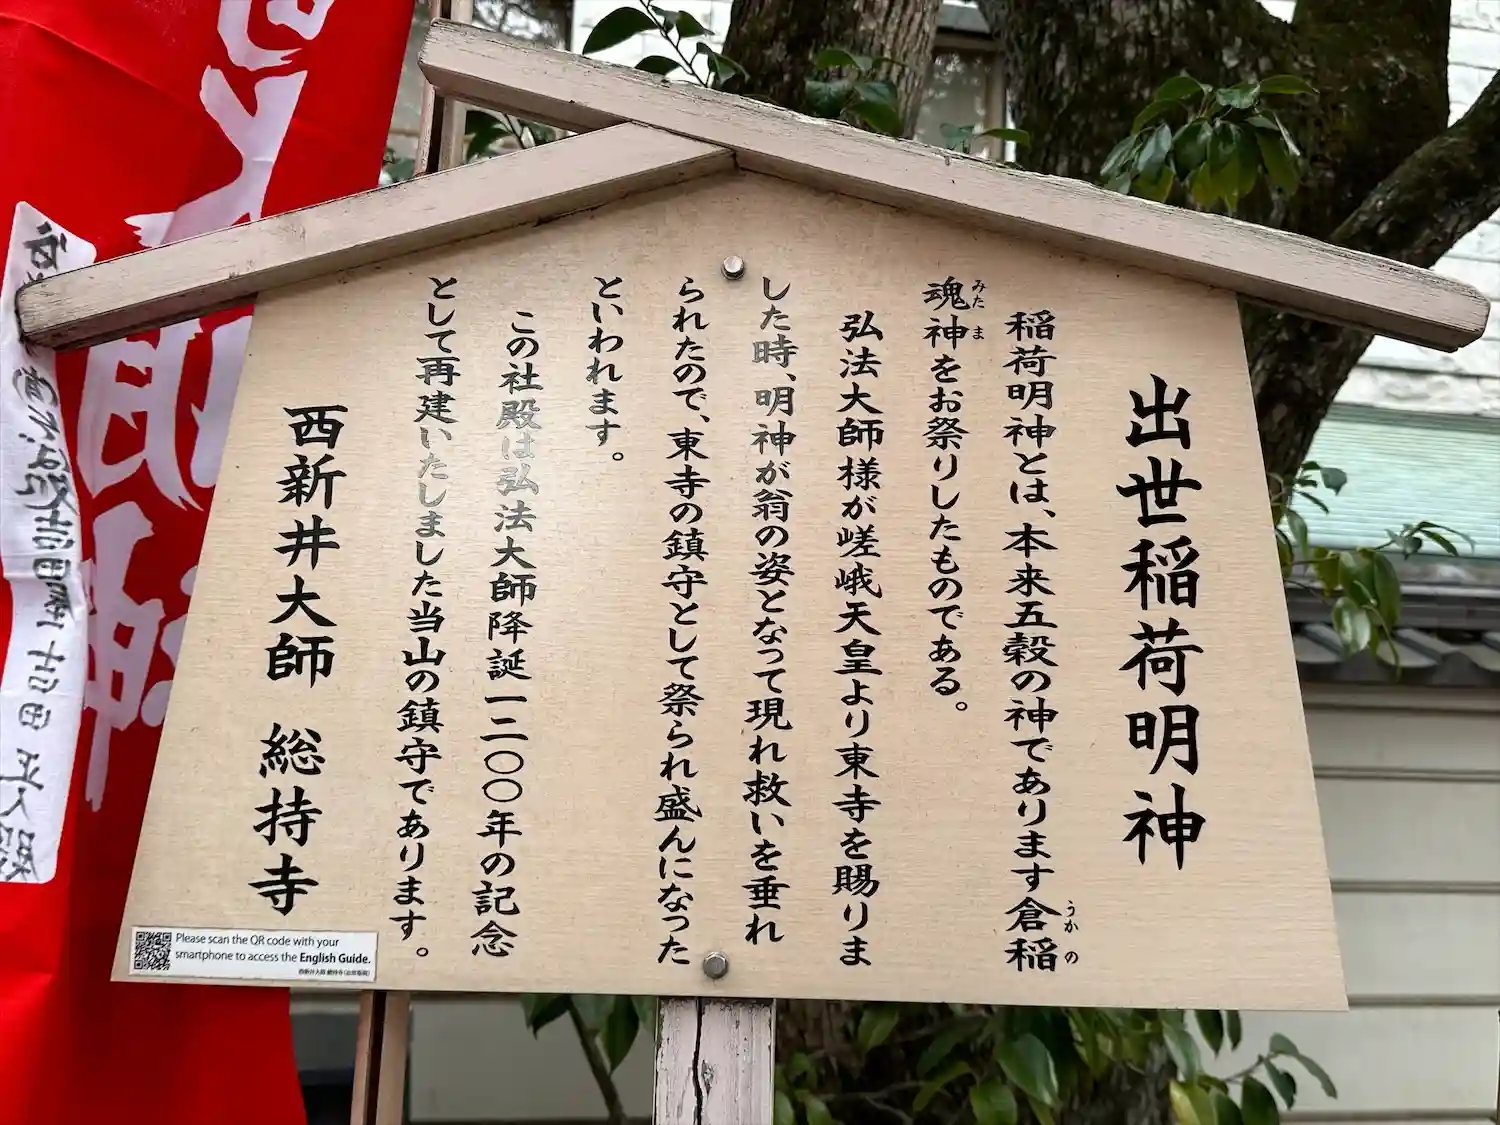 出世稲荷明神
稲荷明神とは、本来五穀の神であります倉稲
うかの
魂神をお祭りしたものである。
みたま
弘法大師様が嵯峨天皇より東寺を賜りま
した時、明神が翁の姿となって現れ救いを垂れ
られたので、東寺の鎮守として祭られ盛んになった
といわれます。
この社殿は弘法大師降誕一二〇〇年の記念
として再建いたしました当山の鎮守であります。
西新井大師 総持寺
Please scan the QR code with your
smartphone to access the English Guide.
明神